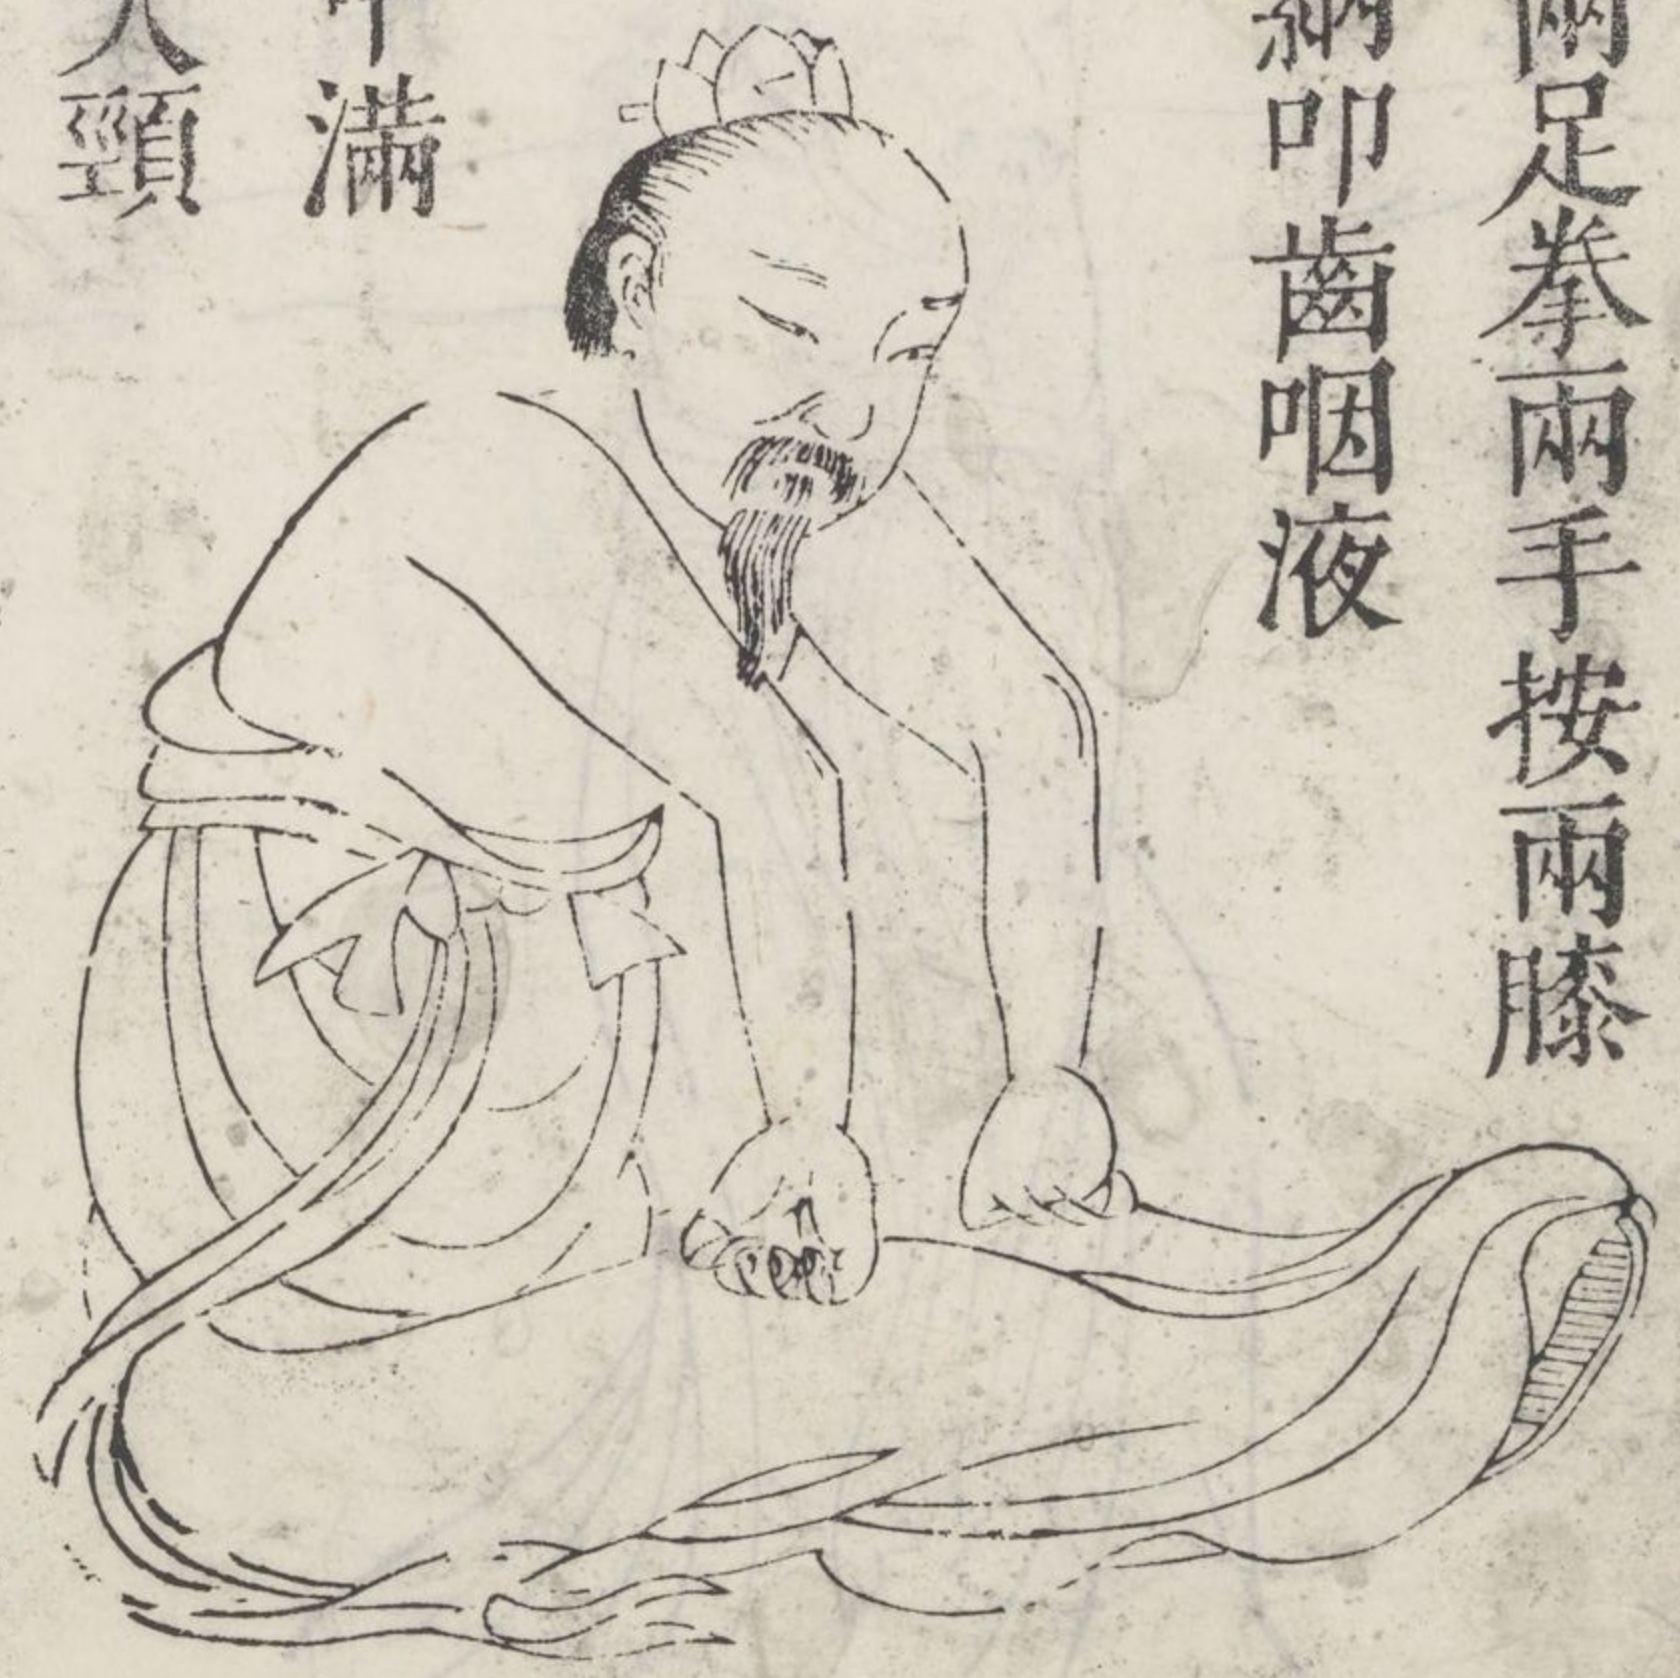 兩足拳兩手按兩膝
納叩齒咽液
滿
頸